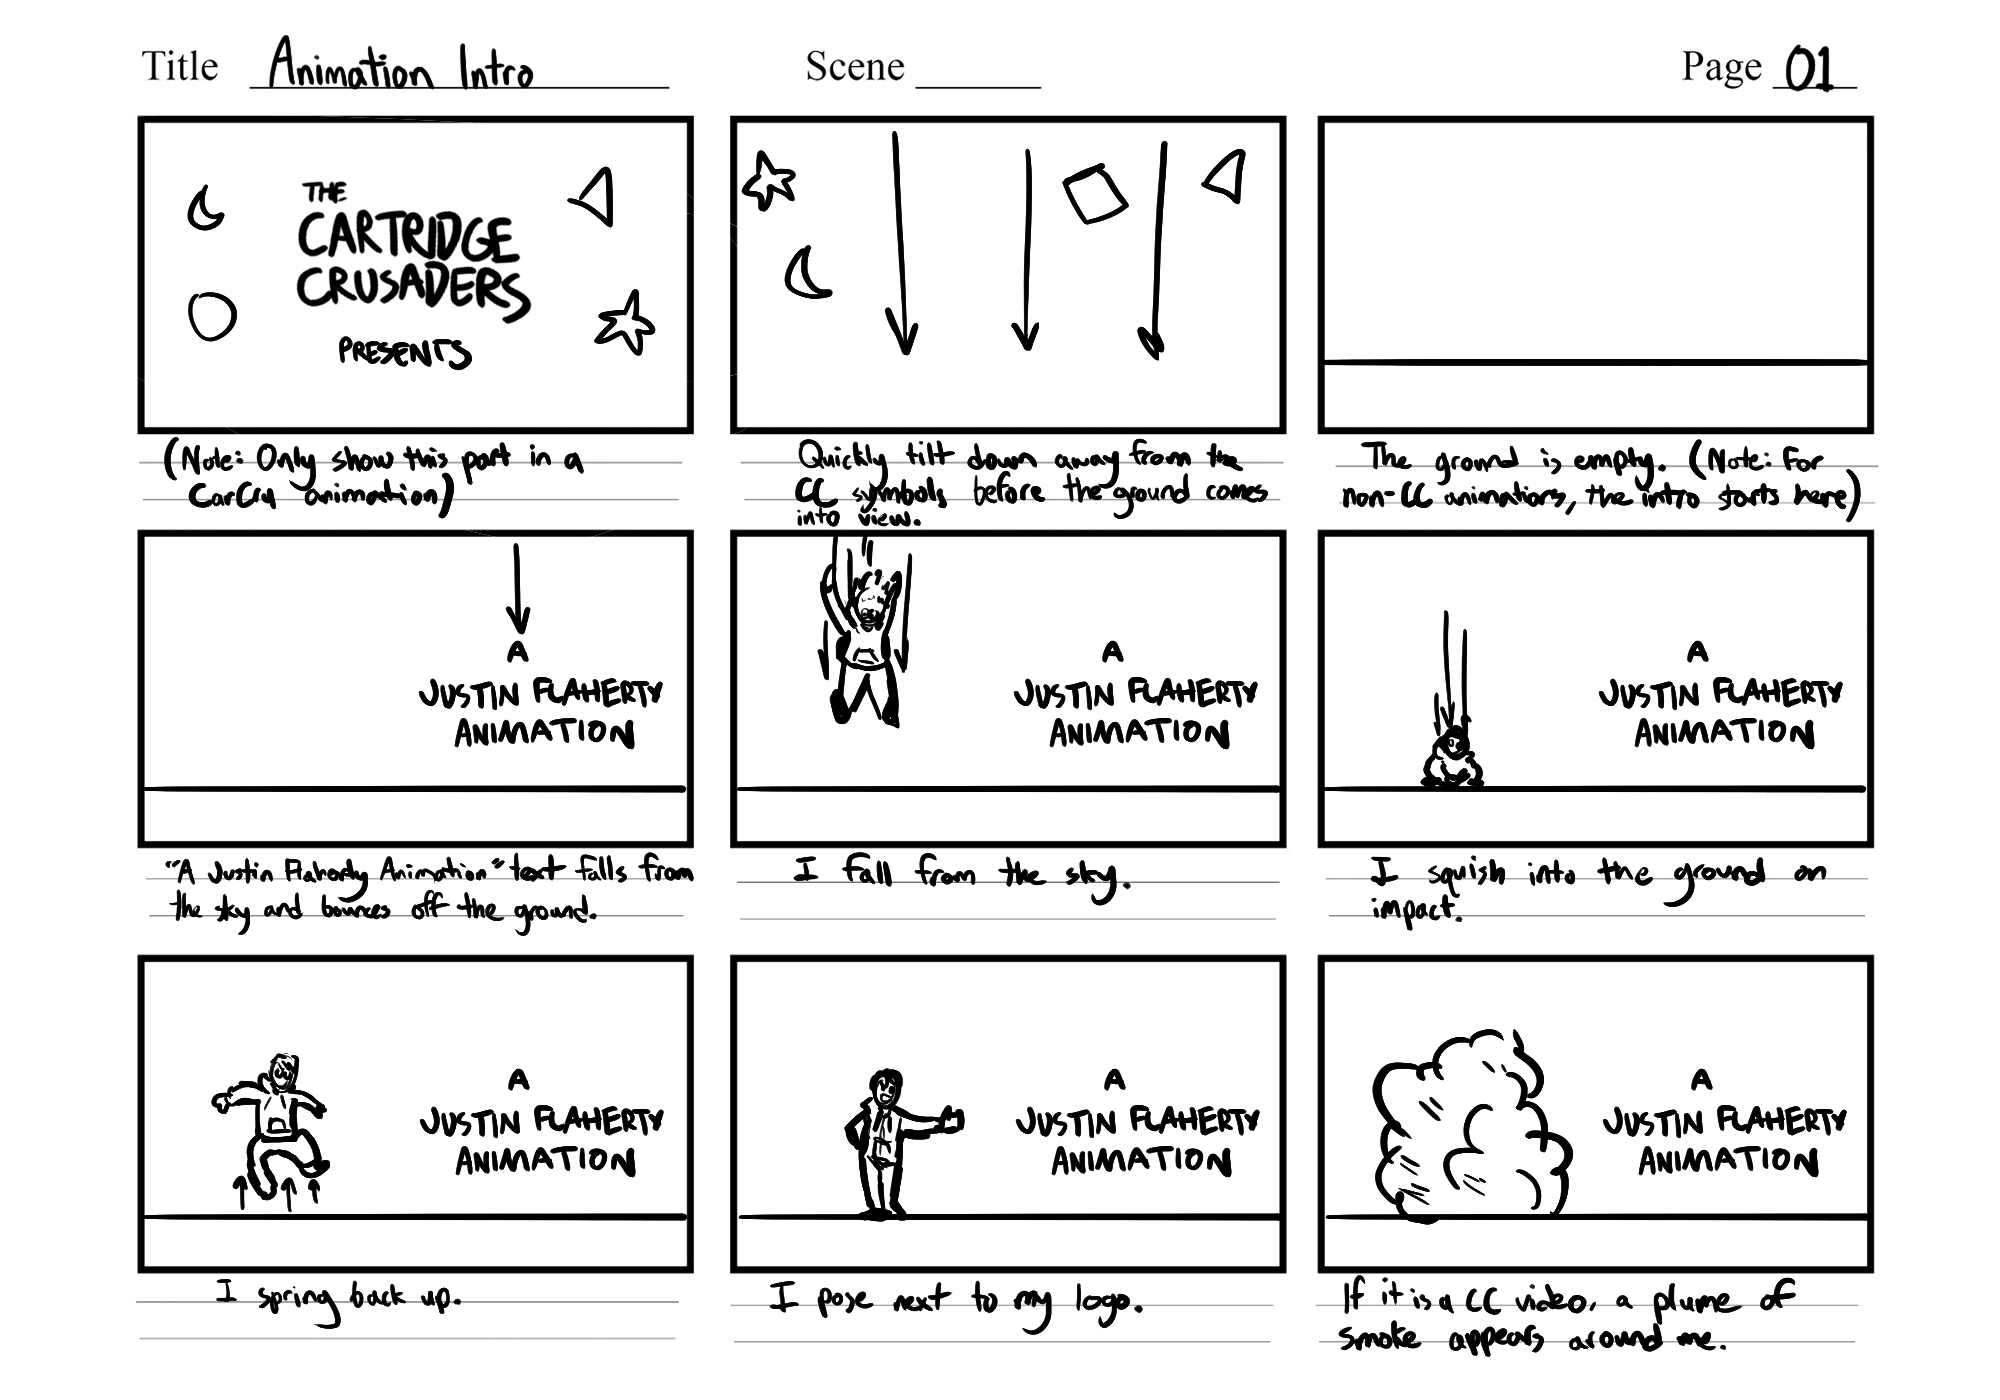 Title Animation Intro
Scene
Page 01
THE
CARTRIDGE
CRUSADERS
PRESENTS
(Note: Only show this part in a
CarCru animation)
Quickly tilt down away from the
CC symbols before the ground comes
into view.
The ground is empty. (Note: For
non-CC animations, the intro starts here)
A
JUSTIN FLAHERTY
ANIMATION
"A Justin Flaherty Animation" text falls from
the sky and bounces off the ground.
A
JUSTIN FLAHERTY
ANIMATION
I fall from the sky.
A
JUSTIN FLAHERTY
ANIMATION
I squish into the ground on
impact.
A
JUSTIN FLAHERTY
ANIMATION
I spring back up.
A
JUSTIN FLAHERTY
ANIMATION
I pose next to my logo.
A
JUSTIN FLAHERTY
ANIMATION
If it is a CC video, a plume of
smoke appears around me.